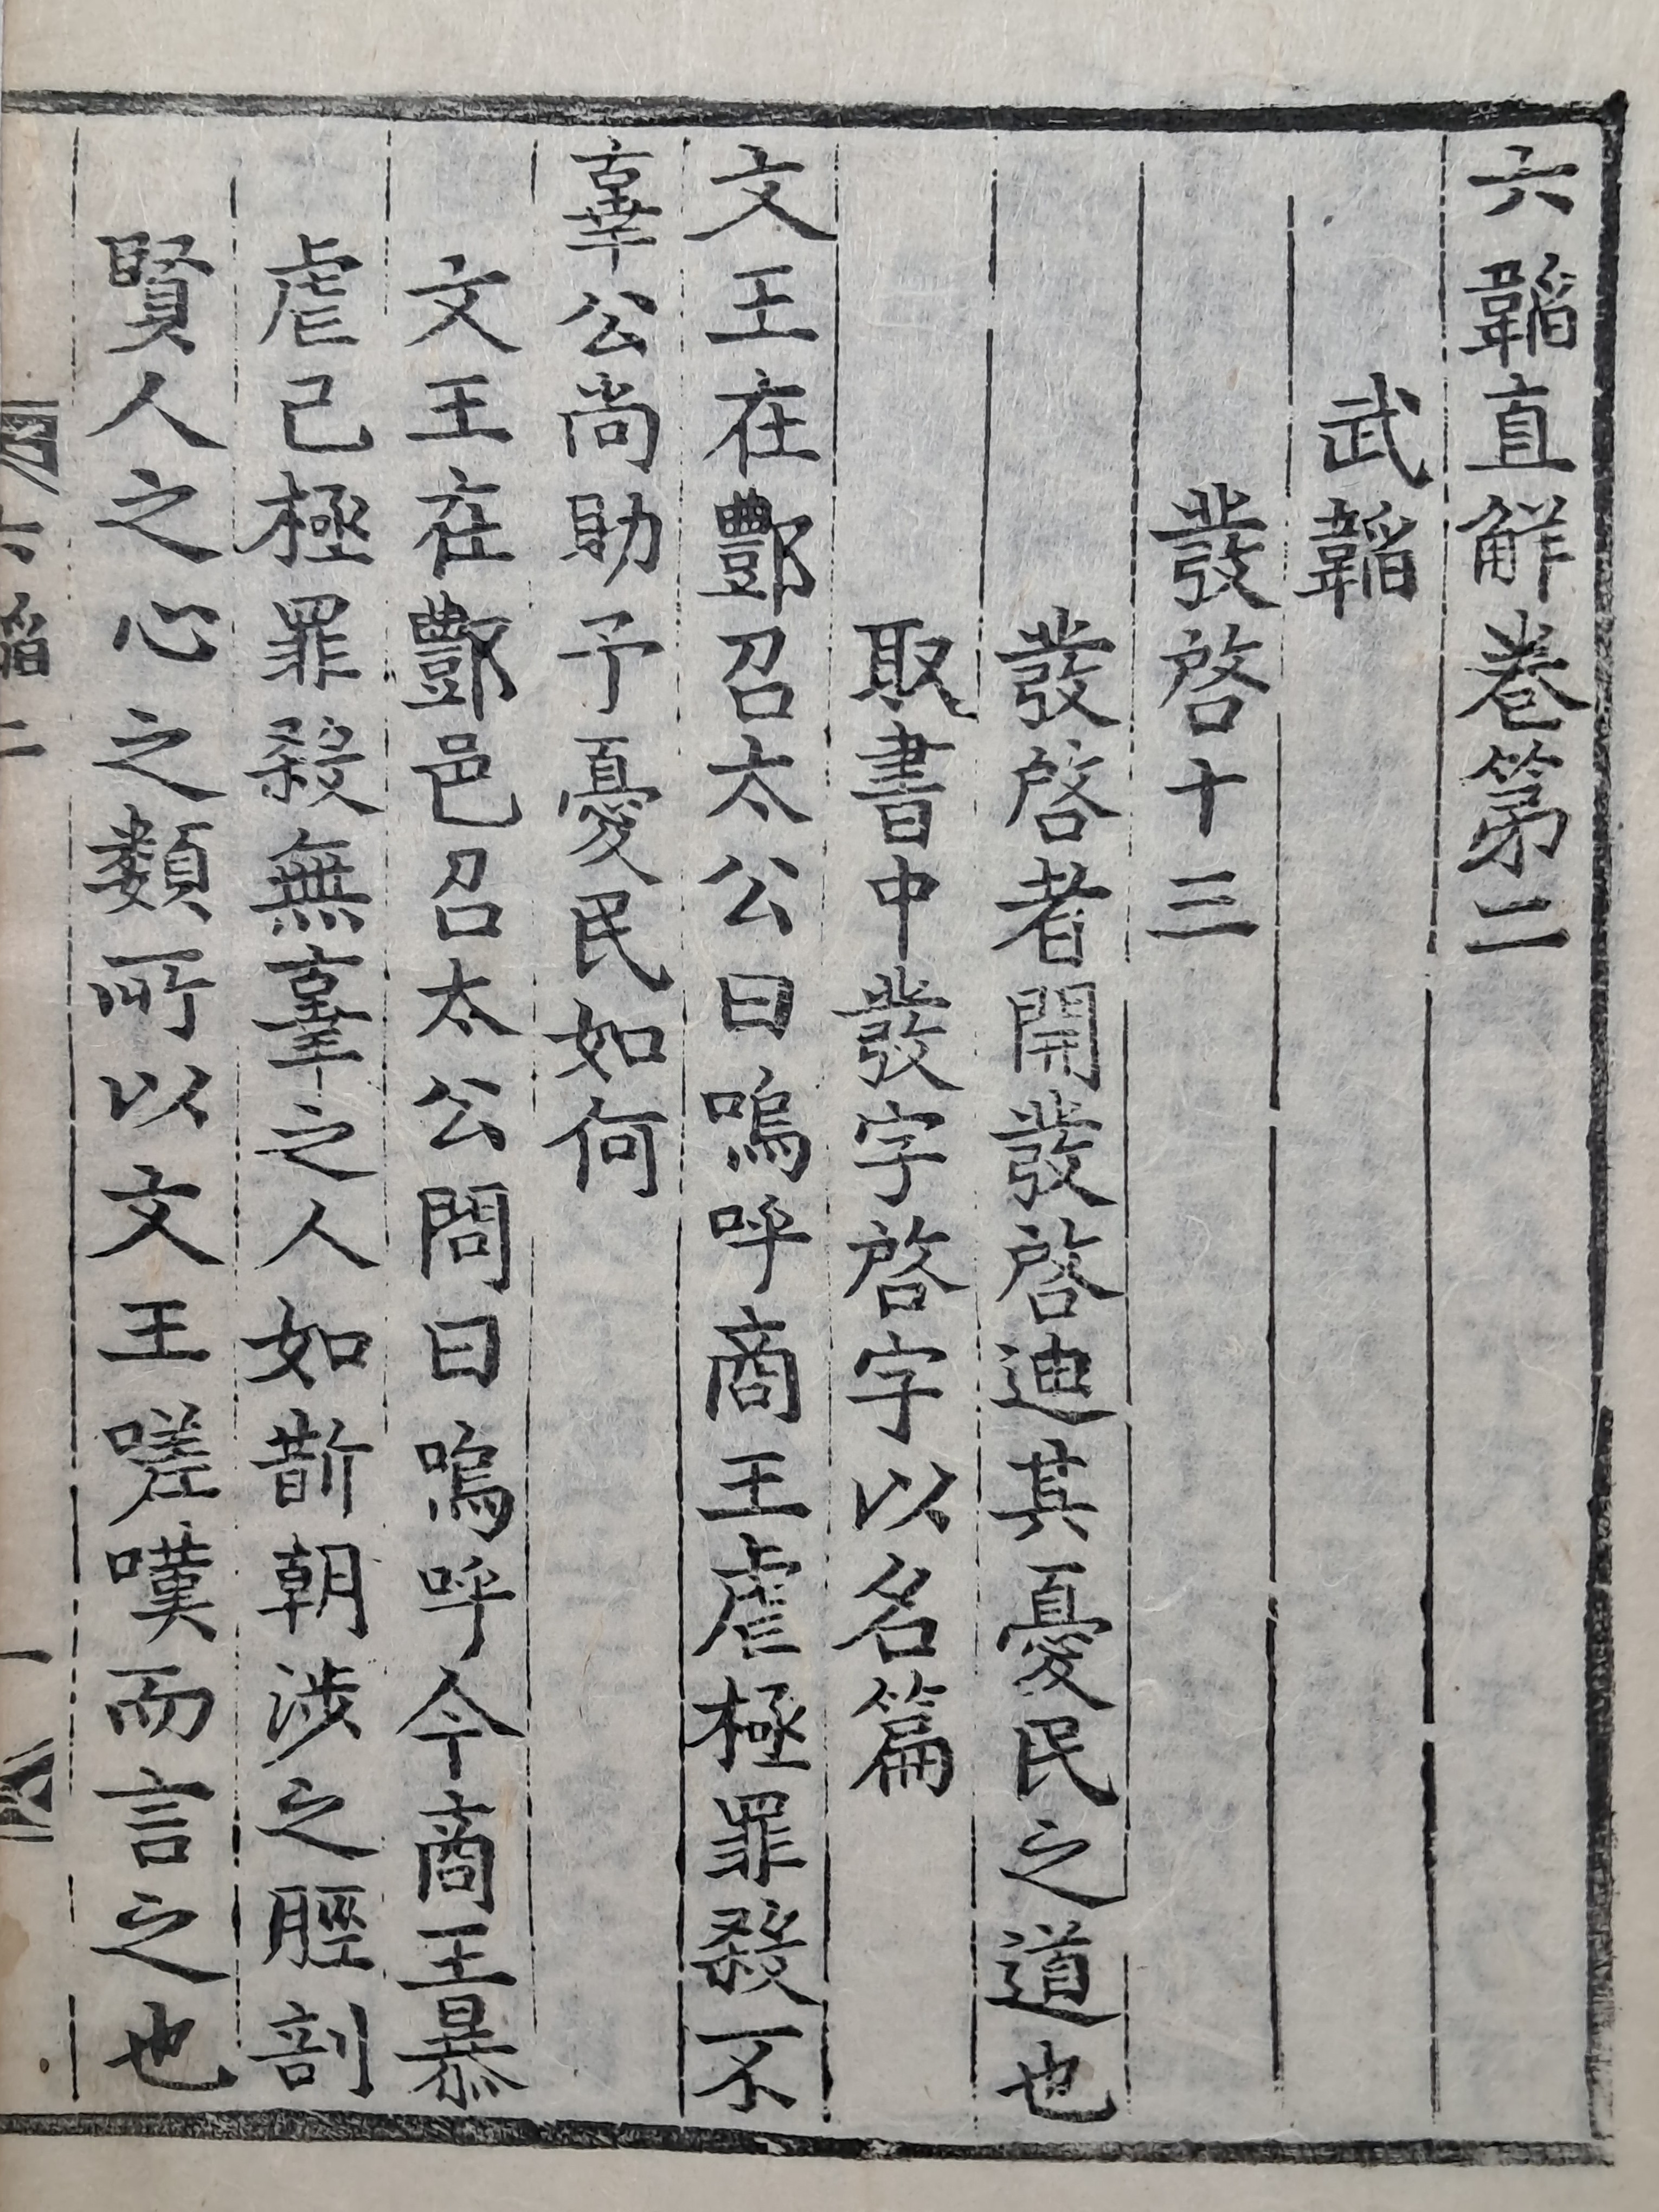 六韜直解卷第二
武韜
發啓十三
發啓者開發啓迪其憂民之道也
取書中發字啓字以名篇
文王在酆召太公曰嗚呼商王虐極罪殺不
辜公尚助予憂民如何
文王在酆邑召太公問曰嗚呼今商王暴
虐已極罪殺無辜之人如斮朝涉之脛剖
賢人之心之類所以文王嗟嘆而言之也
六韜二
一